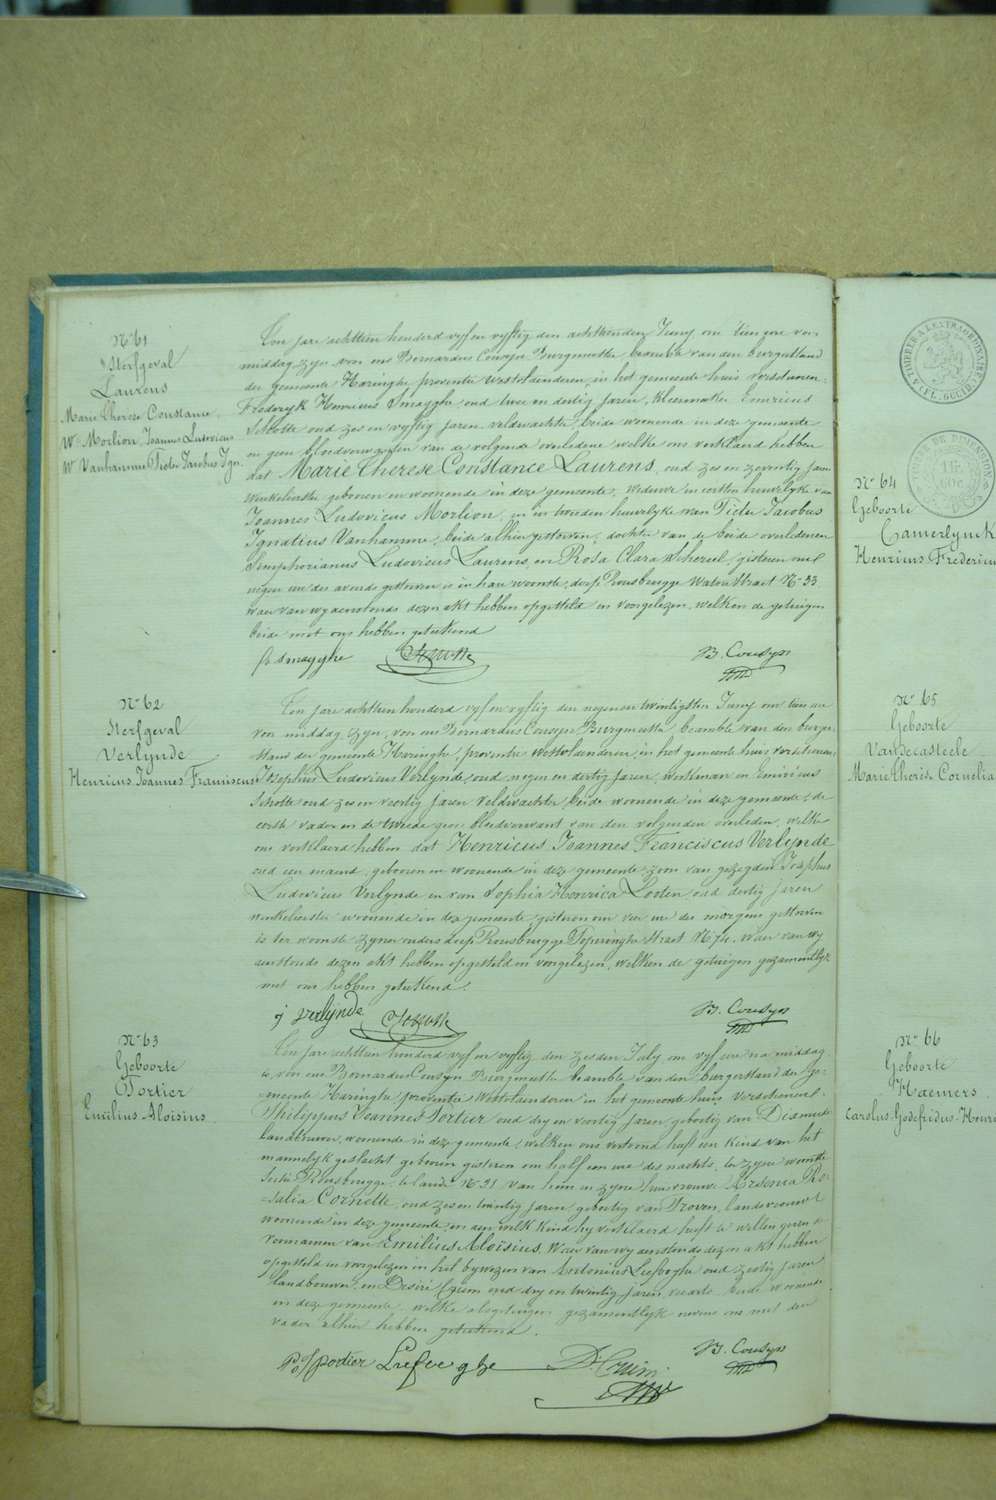 N° 61
Sterfgeval
Laurens
Marie Therese Constance
We Morlion Joannes Ludovicus
We Vanhamme Pieter Jacobus Ign.
Ten jare achttien honderd vyf en vyftig den achttienden Juny om tien ure voor
middag zyn voor ons Bernardus Cousyn Burgmeester beambte van den burgerstand
der gemeente Haringhe provintie Westvlaenderen, in het gemeente huis verschenen
Frederyk Henricus Smagghe oud twee en dertig jaren, kleermaker Emericus
Schotte oud zes en vyftig jaren veldwachter, beide woonende in deze gemeente
en geen bloedverwanten van de volgende overledene welke ons verklaerd hebben
dat Marie Therese Constance Laurens, oud zes en zeventig jaren
winkelierster geboren en woonende in deze gemeente, weduwe in eersten huwelyke van
Joannes Ludovicus Morlion, en in tweeden huwelyke van Pieter Jacobus
Ignatius Vanhamme, beide alhier gestorven, dochter van de beide overledenen
Simphorianus Ludovicus Laurens, en Rosa Clara, gisteren om
negen ure des avonds gestorven is in haer woonste, dorp Rousbrugge Waterstraet N° 33
waer van wy aenstonds dezen akt hebben opgesteld en voorgelezen, welken de getuigen
beide met ons hebben geteekend
fr Smagghe
B. Cousyn
N° 62
Sterfgeval
Verlynde
Henricus Joannes Franciscus
Ten jare achttien honderd vyf en vyftig den negen en twintigsten Juny om tien ure
voor middag zyn, voor ons Bernardus Cousyn Burgmeester, beambte van den burger
stand der gemeente Haringhe, provintie Westvlaenderen, in het gemeente huis verschenen
Josephus Ludovicus Verlynde, oud negen en dertig jaren, werkman en Emericus
Schotte oud zes en veertig jaren veldwachter, beide woonende in deze gemeente, de
eerste vader en de tweede geen bloedverwant van den volgenden overleden, welke
ons verklaerd hebben dat Henricus Joannes Franciscus Verlynde
oud een maend, geboren en woonende in deze gemeente zoon van gezegden Josephus
Ludovicus Verlynde en van Sophia Henrica Looten oud dertig jaren
winkelierster woonende in deze gemeente, gisteren om vier ure des morgens gestorven
is ter woonste zyner ouders dorp Rousbrugge Poperinghe straet N° 74. Waer van wy
aenstonds dezen akt hebben opgesteld en voorgelezen, welken de getuigen gezamentlyk
met ons hebben geteekend.
j verlynde
B. Cousyn
N° 63
Geboorte
Portier
Emilius Aloisius
Ten jare achttien honderd vyf en vyftig den zesden July om vyf ure na middag
is, voor ons Bernardus Cousyn Burgmeester beambte van den burgerstand der ge-
meente Haringhe, provintie Westvlaenderen in het gemeente huis verschenen
Philippus Joannes Portier oud dry en veertig jaren, geboortig van Dixmude
landbouwer, woonende in deze gemeente, welken ons vertoond heeft een kind van het
mannelyk geslacht geboren gisteren om half een ure des nachts, ter zyne woonste
sectie Rousbrugge, te lande N° 31 van hem en zyne huisvrouwe Arsenia Ro-
salia Cornette, oud zes en twintig jaren, geboortig van Proven, landvrouwe
woonende in deze gemeente, en aen welk kind hy verklaerd heeft te willen geven de
voornamen van Emilius Aloïsius. Waer van wy aenstonds dezen akt hebben
opgesteld en voorgelezen in het bywezen van Antonius Liefooghe oud zestig jaren
landbouwer, en Desiré oud dry en twintig jaren, beide woonende
in deze gemeente, welke als getuigen gezamentlyk nevens ons met den
vader alhier hebben geteekend.
P. J. portier
Liefooghe
B. Cousyn
N° 64
Geboorte
Camerlynck
Henricus Fredericus
N° 65
Geboorte
Vandecasteele
Marie Therese Cornelia
N° 66
Geboorte
Haemers
Carolus Godefridus Henri